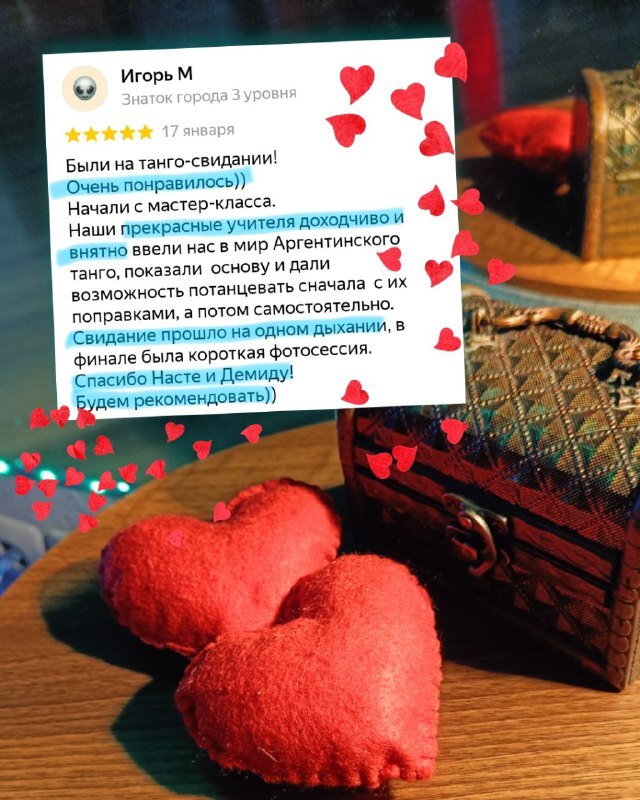 Игорь М
Знаток города 3 уровня
17 января
Были на танго-свидании!
Очень понравилось))
Начали с мастер-класса.
Наши прекрасные учителя доходчиво и
внятно ввели нас в мир Аргентинского
танго, показали основу и дали
возможность потанцевать сначала с их
поправками, а потом самостоятельно.
Свидание прошло на одном дыхании, в
финале была короткая фотосессия.
Спасибо Насте и Демиду!
Будем рекомендовать))